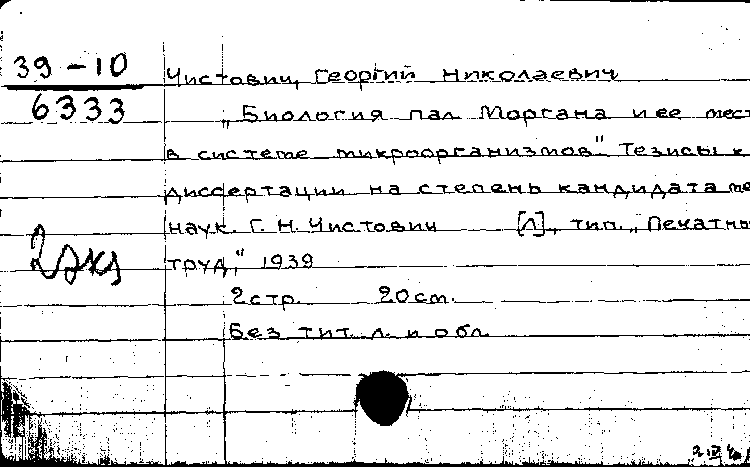 39-10
6333
Чистович, Георгий Николаевич
„Биология пал. Моргана и ее мест
в системе микроорганизмов". Тезисы к
диссертации на степень кандидата ме
наук. Г. Н. Чистович [Л]., тип. „Печатны
труд", 1939
2 стр. 20 см.
Без тит. л. и обл.
2 экз